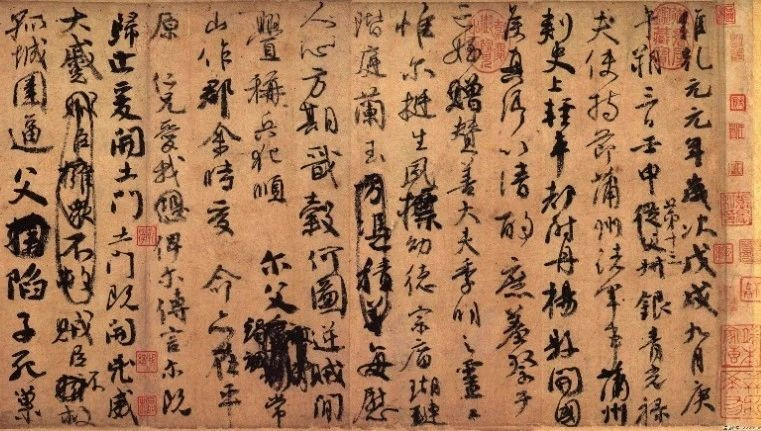 維乾元元年歲次戊戌九月庚
午朔三日壬申第十三從父銀青光祿
夫使持節蒲州諸軍事蒲州
刺史上輕車都尉丹楊縣開國
侯真卿以清酌庶羞祭于
亡姪贈贊善大夫季明之靈曰
惟爾挺生夙標幼德宗廟瑚璉
階庭蘭玉方憑積善每慰
人心方期戩穀何圖逆賊閒
釁稱兵犯順爾父竭誠常
山作郡余時受命亦在平
原仁兄愛我俾爾傳言爾既
歸止爰開土門土門既開凶威
大蹙賊臣擁衆不救賊臣不救
孤城圍逼父陷子死巢